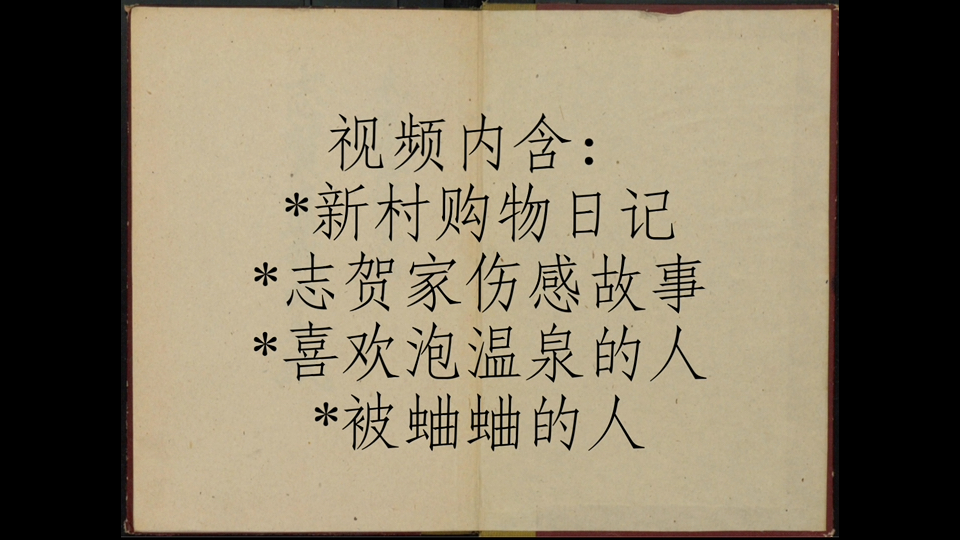 视频内含：
*新村购物日记
*志贺家伤感故事
*喜欢泡温泉的人
*被蛐蛐的人